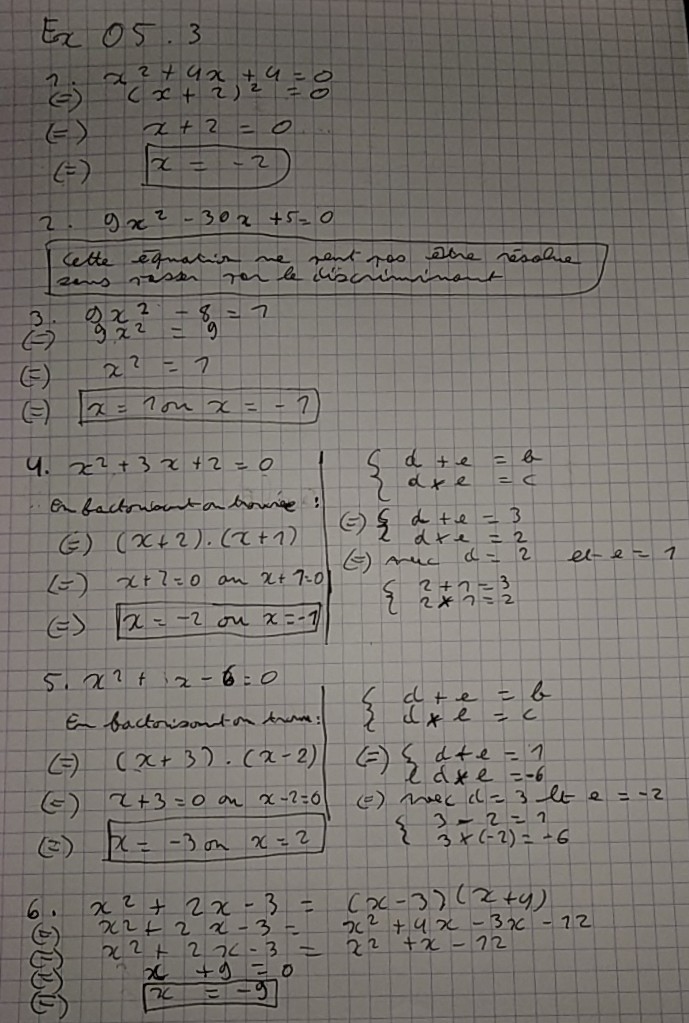 Ex 05.3
1. x² + 4x + 4 = 0
(=) (x + 2)² = 0
(=) x + 2 = 0
(=) x = -2
2. 9x² - 30x + 5 = 0
Cette équation ne peut pas être résolue
sans passer par le discriminant
3. 9x² - 8 = 1
(=) 9x² = 9
(=) x² = 1
(=) x = 1 ou x = -1
4. x² + 3x + 2 = 0
En factorisant on trouve :
(=) (x+2).(x+1)
(=) x+2=0 ou x+1=0
(=) x = -2 ou x=-1
{ d + e = b
d * e = c
(=) { d + e = 3
d * e = 2
(=) avec d = 2 et e = 1
{ 2 + 1 = 3
2 * 1 = 2
5. x² + x - 6 = 0
En factorisant on trouve :
(=) (x+3).(x-2)
(=) x+3=0 ou x-2=0
(=) x = -3 ou x = 2
{ d + e = b
d * e = c
(=) { d+e = 1
d*e = -6
(=) avec d = 3 et e = -2
{ 3 - 2 = 1
3*(-2) = -6
6. x² + 2x - 3 = (x-3)(x+4)
(=) x² + 2x - 3 = x² + 4x - 3x - 12
(=) x² + 2x - 3 = x² + x - 12
(=) x + 9 = 0
(=) x = -9